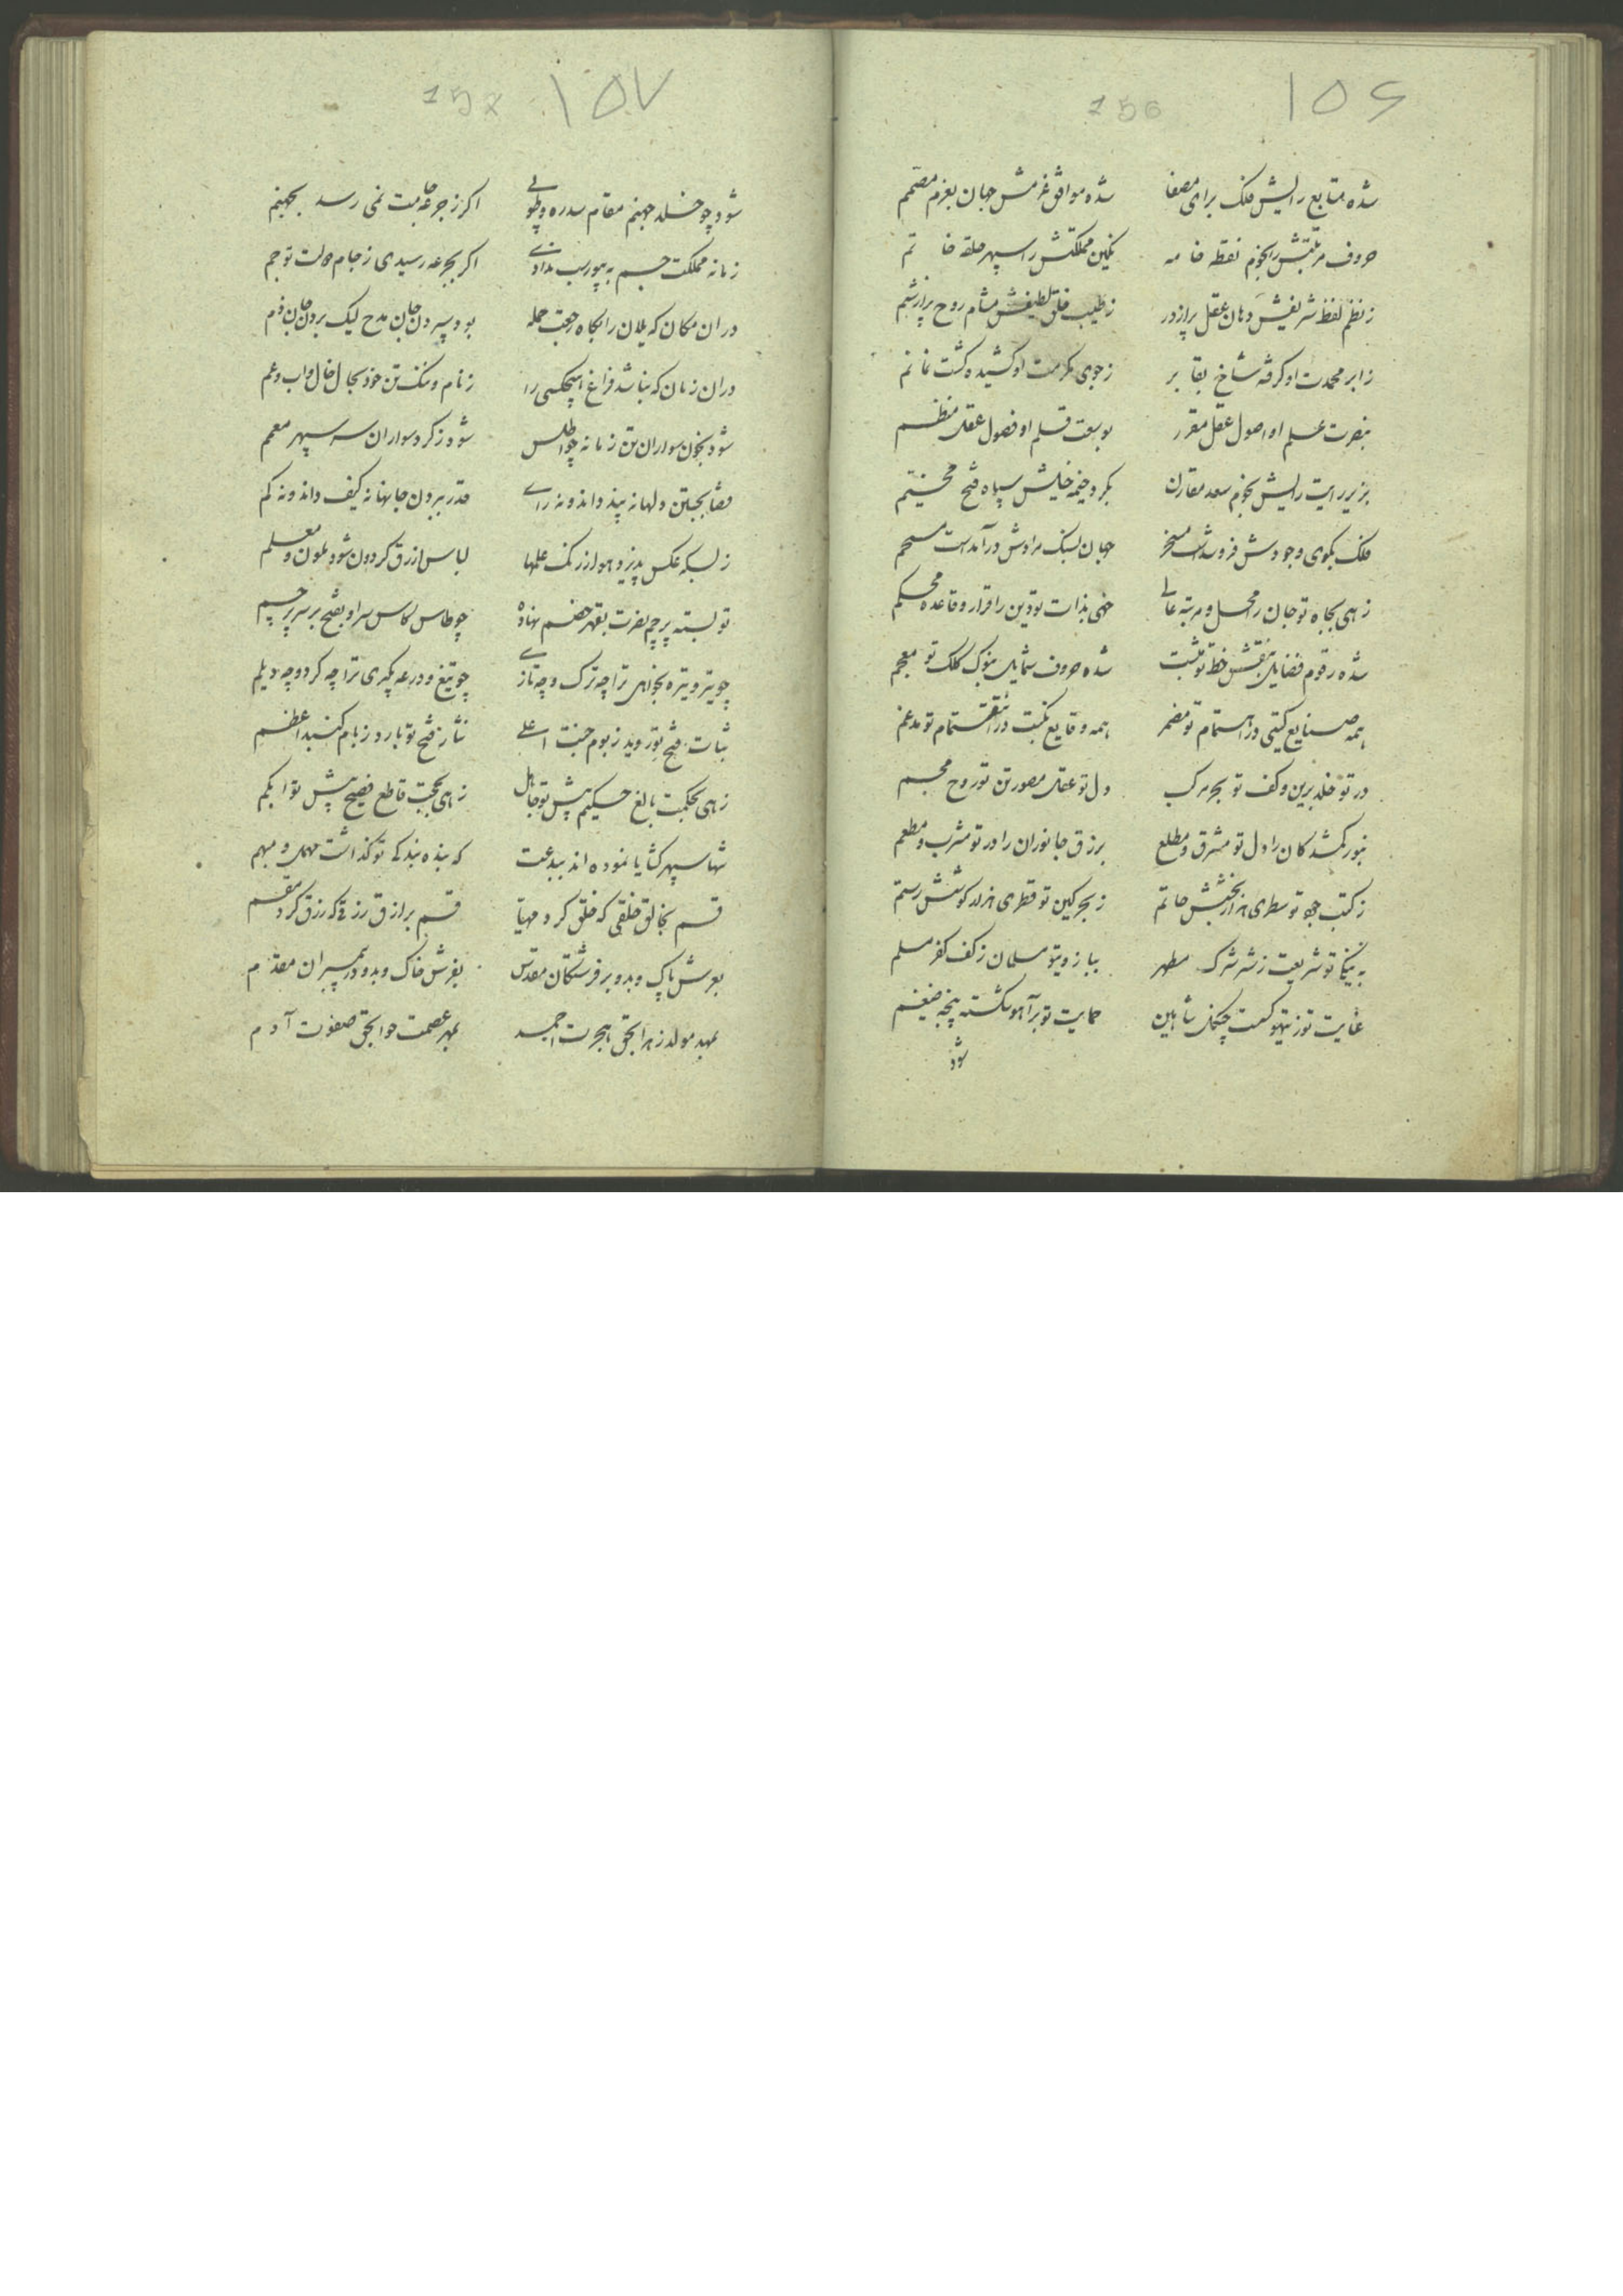 156 ۱۵۶
شده متابع رایش فلک برای مصفا شده موافق عزمش جهان بعزم مصمم
حروف مرتبتش را نجوم نقطه خامه نکین مملکتش را سپهر حلقه خاتم
ز نظم لفظ شریفش دهان عقل پر از در ز طیب خلق لطیفش مشام روح پر از شم
ز ابر محمدت او کرفته شاخ بقا بر ز جوی مکرمت او کشیده کشت نما نم
بنصرت علم او اصول عقل مقرر بوسعت قلم او فصول عقل منظم
بزیر رایت رایش نجوم سعد مقارن بکرد خیمه خیلش سپاه فتح مخیم
فلک بکوی وجودش فرو شدست مسخر جهان بسنک مرادش درآمدست
زهی بجاه تو جان را محل و مرتبه عالی خهی بذات تو دین را قرار و قاعده محکم
شده رقوم فضایل بنقش خط تو مثبت شده حروف شمایل بنوک کلک تو معجم
همه صنایع کیتی در اهتمام تو مضمر همه وقایع نکبت در انتقام تو مدغم
در تو خلد برین و کف تو بحر مرکب دل تو عقل مصور تن تو روح مجسم
بنور کمشدکان را دل تو مشرق و مطلع برزق جانوران را در تو مشرب و مطعم
ز کتب جود تو سطری هزار بخشش حاتم ز بحر کین تو قطری هزار کوشش رستم
به نیکی تو شریعت ز شر شرک مطهر ببازوی تو مسلمان ز کف کفر مسلم
عنایت تو ز تیهو کسست چنکل شاهین حمایت تو بر آهو شکسته پنجه ضیغم
شود
157 ۱۵۷
شود چو خلد جهنم مقام سدره و طوبی اکر ز جرعه جامت نمی رسد بجهنم
زمانه مملکت جم به بیورسب ندادی اکر بجرعه رسیدی ز جام دولت تو جم
در ان مکان که یلان را بکاه رجعت حمله بود سپردن جان مدح لیک بردن جان ذم
دران زمان که نباشد فراغ هیچکسی را ز نام و ننک تن خود بحال خال و اب و عم
شود بخون سواران تن زمانه چو اطلس شود ز کرد سواران سر سپهر معمم
قضا بجستن دلها نه پند داند و نه رای قدر ببردن جانها نه کیف داند و نه کم
ز بسکه عکس پذیرد هوا ز رنک علمها لباس ازرق کردون شود ملون و معلم
تو بسته پرچم نصرت بقهر خصم نهاده چو طاس کاس سر او بفتح بر سر پرچم
چو تیر و نیزه بخواهی ترا چه ترک و چه تازی چو تیغ و درعه بکیری ترا چه کرد و چه دیلم
ثبات فتح تو روید ز بوم جنت اعلی نثار فتح تو بارد ز بام کنبد اعظم
زهی بحکمت بالغ حکیم پیش تو جاهل زهی بحجت قاطع فصیح پیش تو ابکم
شها سپهر کشایا نموده اند ببدعت که بنده بندکی تو کذاشت مهمل و مبهم
قسم بخالق خلقی که خلق کرد مهیا قسم برازق رزقی که رزق کرد مقسم
بعرش پاک و بدو بر فرشتکان مقدس بفرش خاک و بدو در پیمبران مقدم
بمهد مولد زهرا بحق هجرت احمد بمهر عصمت حوا بحق صفوت آدم